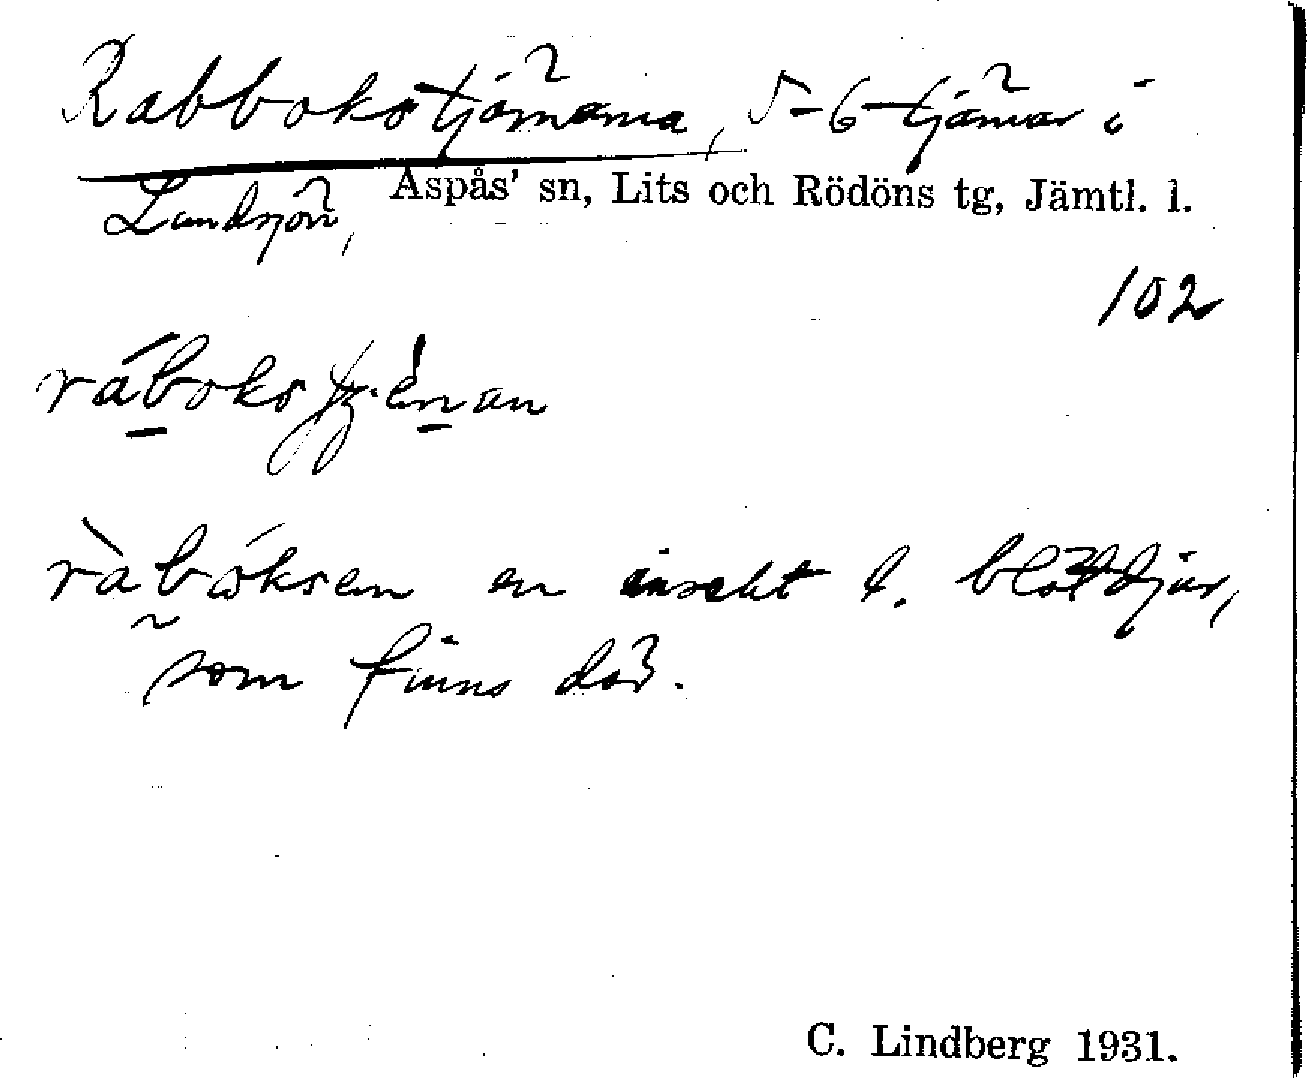 Rabbokstjärnarna, 5-6 tjärnar i
Landsjön, Aspås' sn, Lits och Rödöns tg, Jämtl. l.
102
råboksen en insekt l. blötdjur,
som finns där.
C. Lindberg 1931.